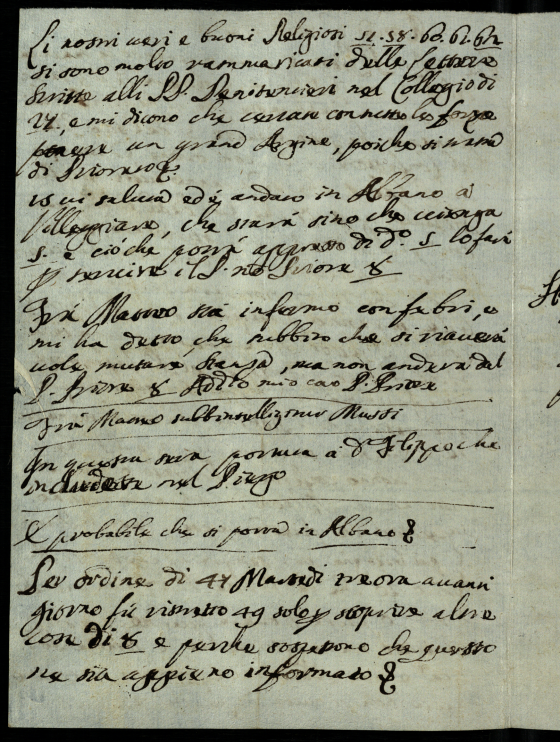 Li nostri veri e buoni Religiosi 51.58.60.61.62
si sono molto rammaricati delle lettere
scritte alli PP. Penitenzieri nel Collegio di
24, e mi dicono che cercate con tutte le forze
ponere un grand Argine, poiche si tratta
di
15 vi saluta ed è andato in Albano a
Villeggiare, che starà sino che
S. e ciò che potrà appresso di d.º S lo farà
p servire il P. nro Priore 8
Frà Matteo stà infermo con febri, e
mi ha detto che subbito che si riaverà
vole mutare stanza, ma non andarà dal
P. Priore 8 Addio mio caro P. Priore
Frà Matteo subbintelligitur Mussi
In questa sera portata a Dr Filippo che
nel Piego
È probabile che si porrà in Albano 8
Per ordine di 47 Martedi tre ora avanti
giorno fù rimesso 49 solo p scoprire altre
cose di 8 e perche sospettono che questo
ne sia appieno informato 8